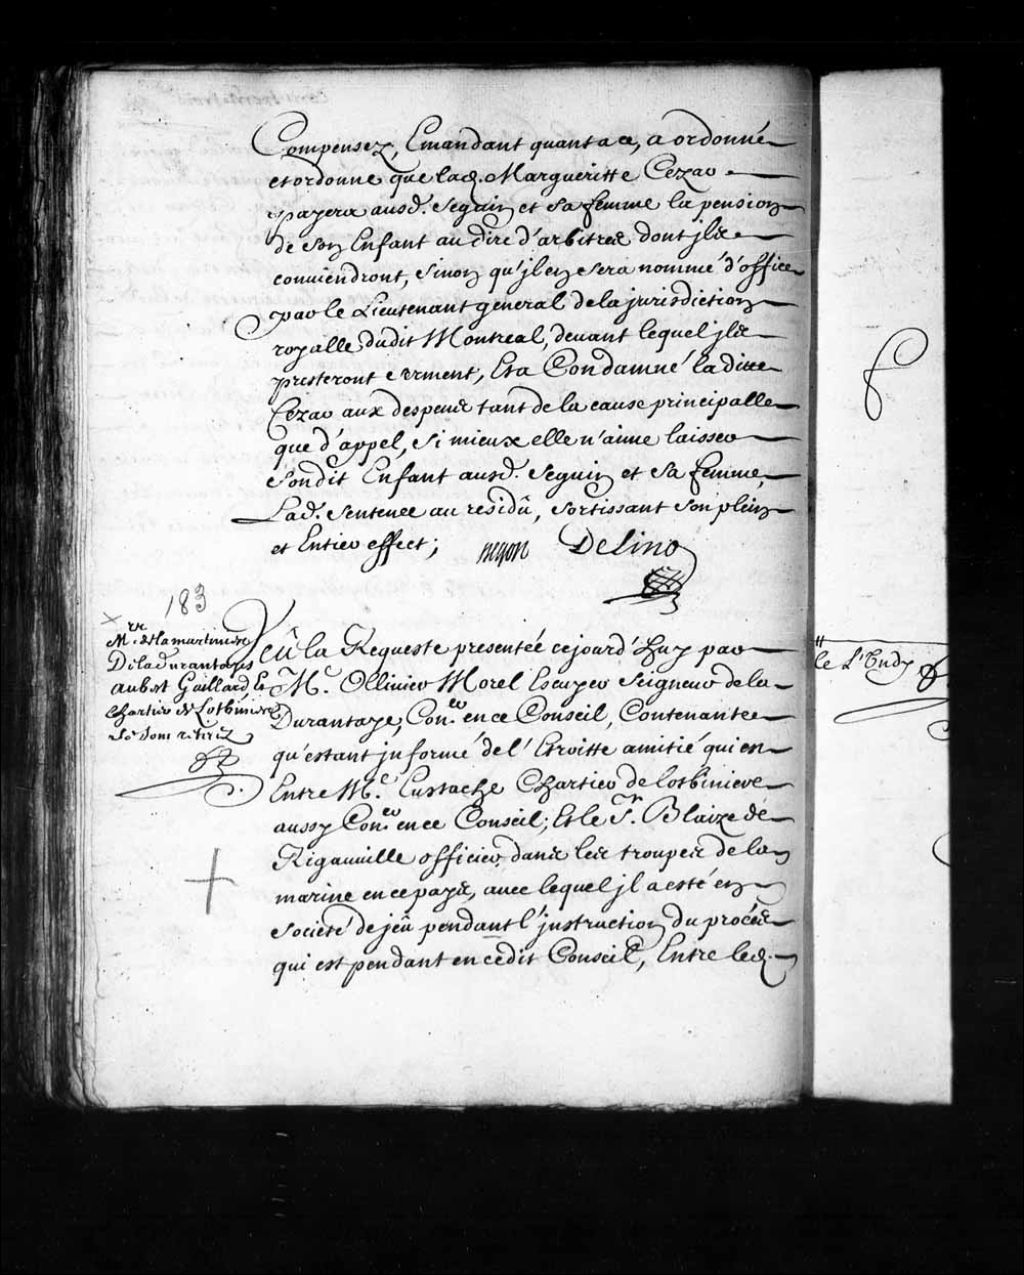 Compensez, Emandant quant a ce, a ordonné
et ordonne que lad. Margueritte Cezar
payera ausd. Seguin et sa femme la pension
de son Enfant au dire d'arbitres dont jls
conviendront, sinon qu'jl en sera nommé d'office
par le Lieutenant general de la jurisdiction
royalle dudit Montreal, devant lequel jls
presteront serment, Et a Condamné la ditte
Cezar aux despens tant de la cause principalle
que d'appel, si mieux elle n'aime laisser
sondit Enfant ausd. Seguin et sa femme,
Lad. Sentence au residû, sortissant son plein
et Entier effect;
Begon Delino
183
Mrs. de la martiniere
De la durantaye
aubert Gaillard, Et
Chartier de Lotbiniere
se sont retirez
Veû la Requeste presentée cejourd'huy par
Me. Ollivier Morel Escuyer Seigneur de la
Durantaye, Coner. en ce Conseil, Contenant
qu'estant jnformé de l'Etroitte amitié qui est
Entre Me. Eustache Chartier de lotbiniere
aussy Coner. en ce Conseil; Et le Sr. Blaize de
Rigauville officier dans les troupes de la
marine en ce pays, avec lequel jl a esté en
societé de jeû pendant l'jnstruction du procés
qui est pendant en cedit Conseil, Entre led.
le Sr